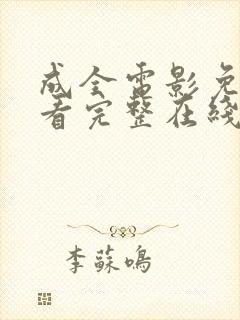 成全電影免
看完整在綫
李蘇鳴